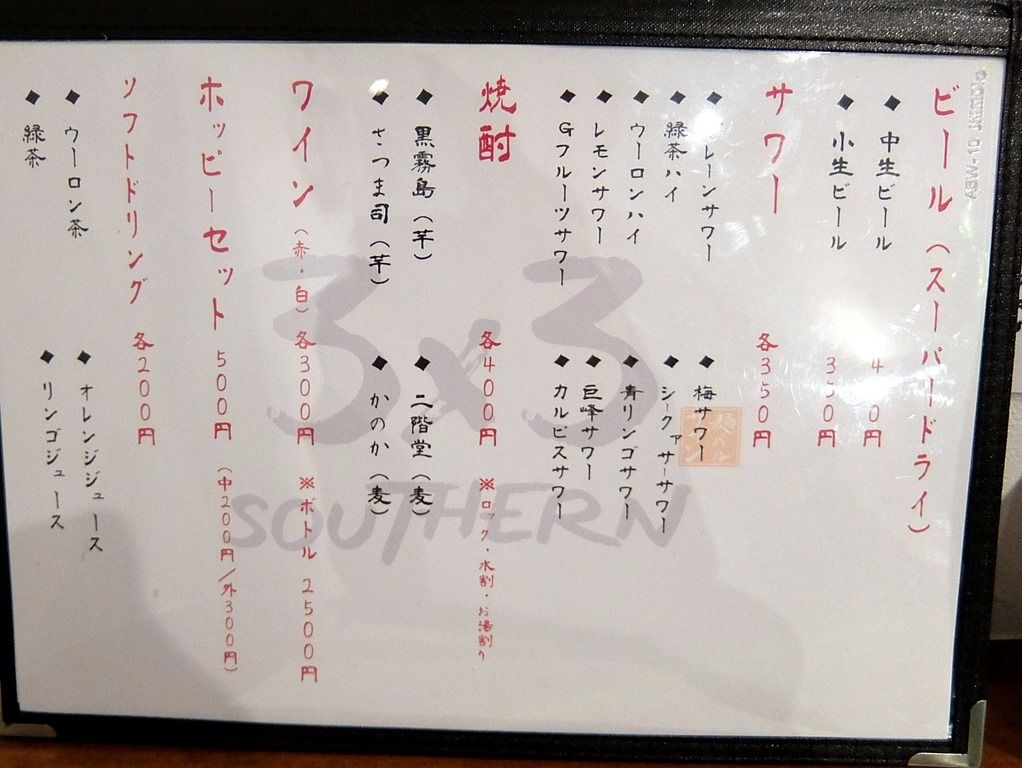 ビール（スーパードライ）
◆ 中生ビール 4 0円
◆ 小生ビール 350円
サワー 各350円
◆ レーンサワー
◆ 緑茶ハイ
◆ ウーロンハイ
◆ レモンサワー
◆ Gフルーツサワー
◆ 梅サワー
◆ シークァーサーサワー
◆ 青リンゴサワー
◆ 巨峰サワー
◆ カルピスサワー
焼酎 各400円 ※ロック・水割・お湯割り
◆ 黒霧島（芋）
◆ さつま司（芋）
◆ 二階堂（麦）
◆ かのか（麦）
ワイン（赤・白）各300円 ※ボトル 2500円
ホッピーセット 500円（中200円／外300円）
ソフトドリング 各200円
◆ ウーロン茶
◆ 緑茶
◆ オレンジジュース
◆ リンゴジュース
3x3
SOUTHERN